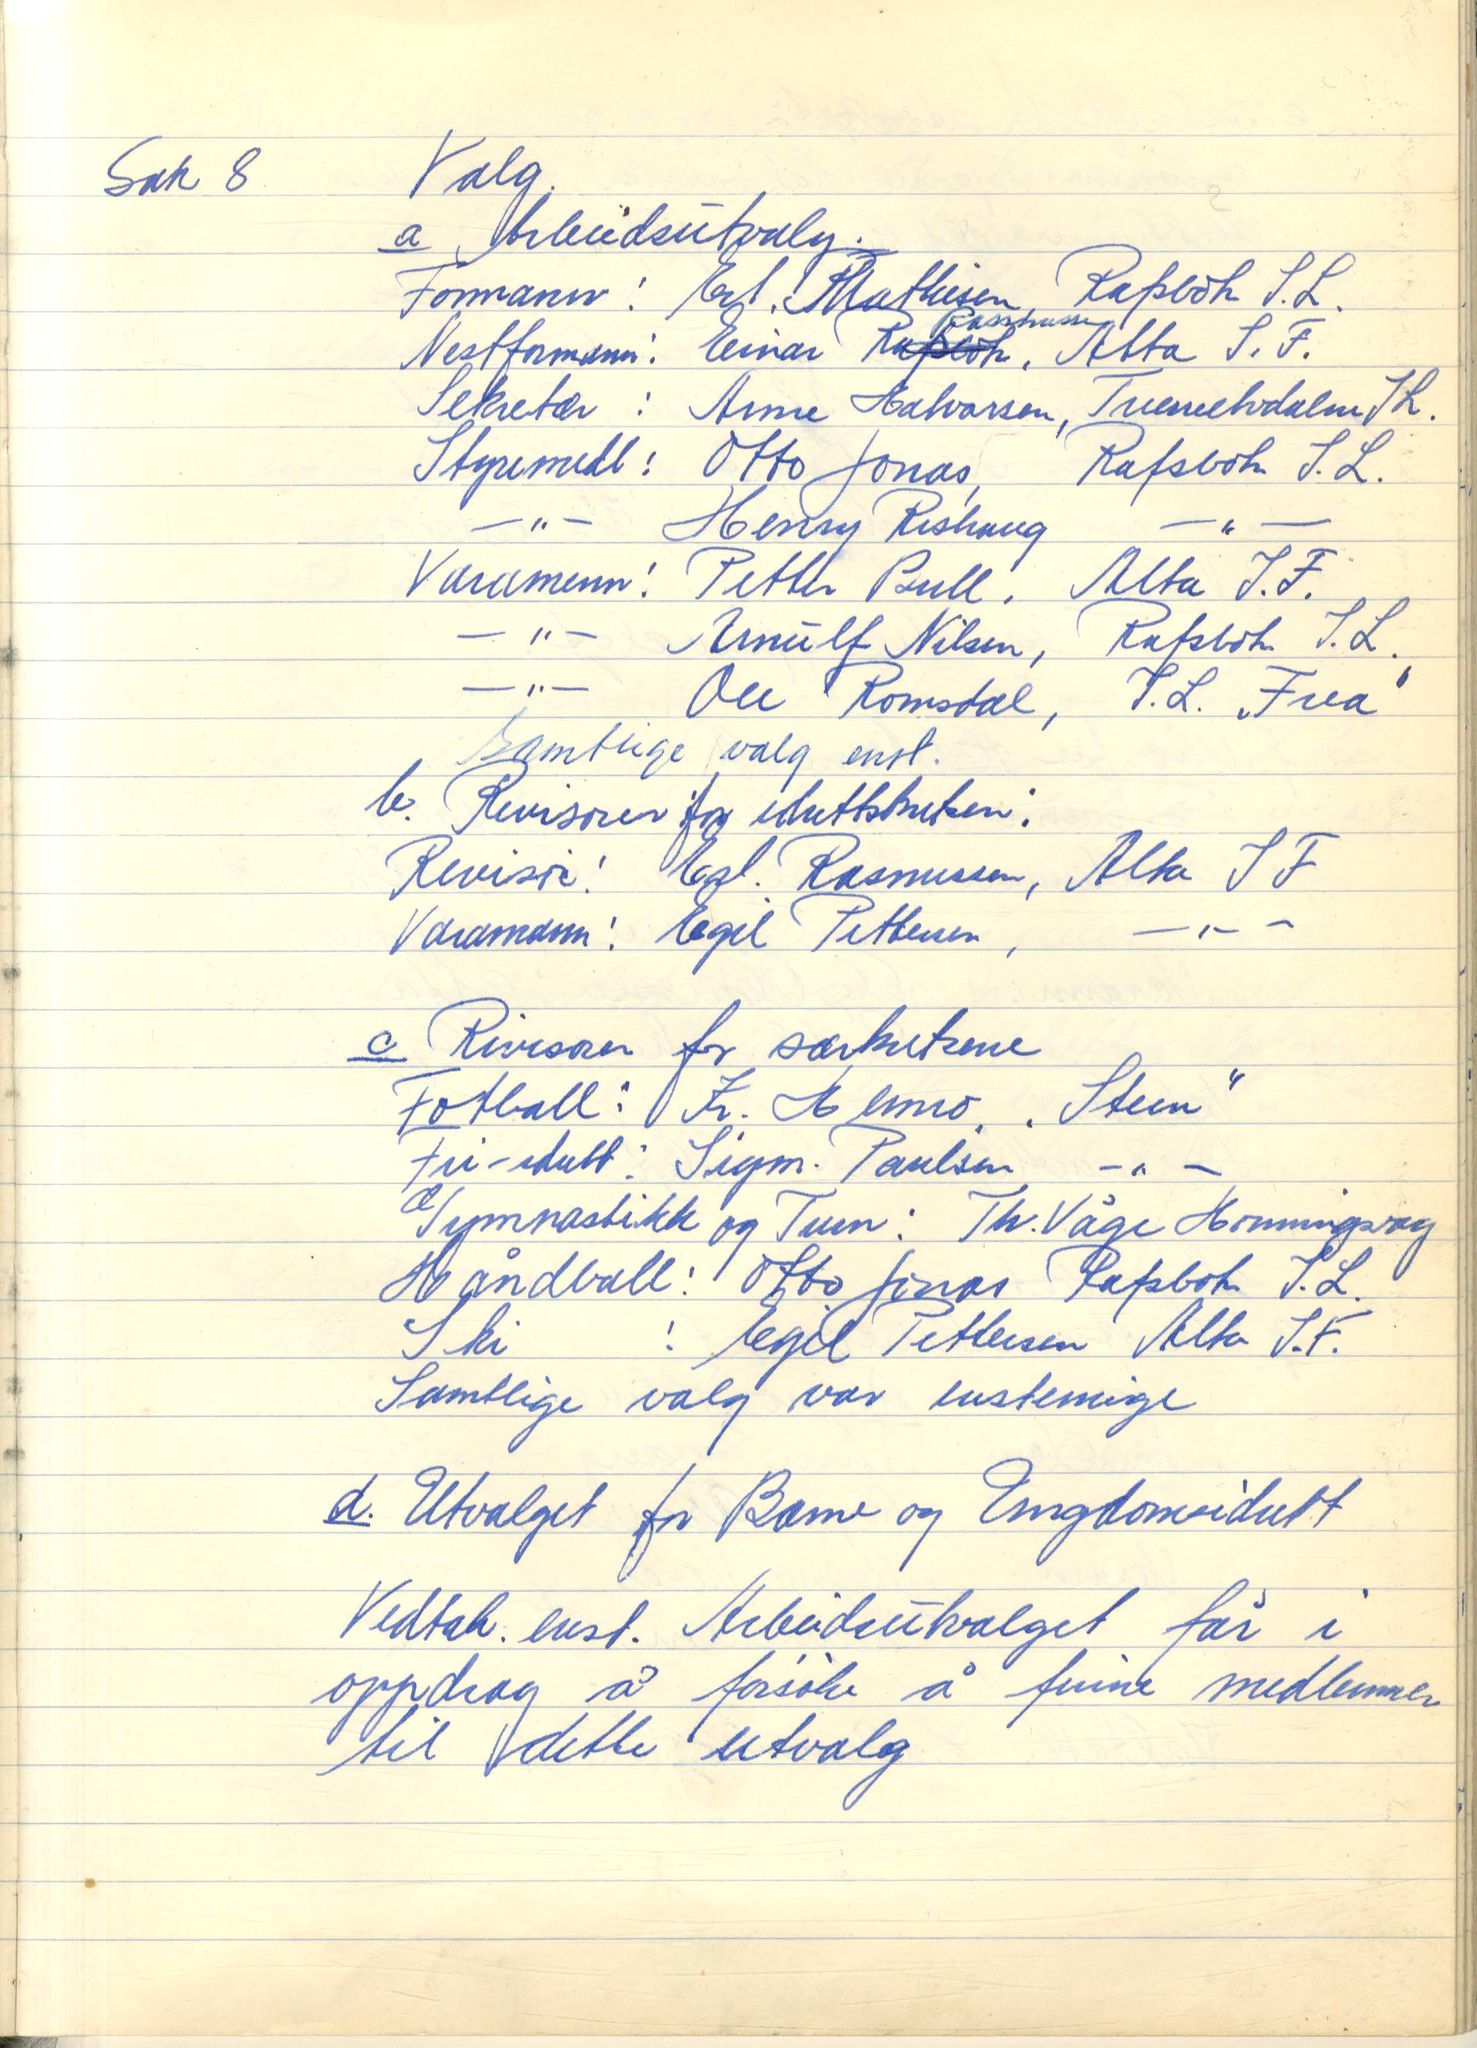 Sak 8 Valg.
a Arbeidsutvalg.
Formann: Erl. Mathisen, Rafsbotn I.L.
Nestformann: Einar Rafsbotn Rasmussen, Alta I.F.
Sekretær : Arne Halvorsen, Tverrelvdalen IL.
Styremedl: Otto Jonas, Rafsbotn I.L.
—"— Henry Rishaug —"—
Varamenn: Petter Bull, Alta I.F.
—"— Arnulf Nilsen, Rafsbotn I.L.
—"— Ole Romsdal, I.L. "Frea"
Samtlige valg enst.
b. Revisorer for idrettskretsen:
Revisor: Erl. Rasmussen, Alta I F
Varamann: Egil Pettersen, —"—
c Rivisorer for særkretsene
Fotball: Fr. Hemo, "Stein"
Fri-idrett: Sigm. Paulsen —"—
Gymnastikk og Turn: Th. Våge Honningsvåg
Håndball: Otto Jonas Rafsbotn I.L.
Ski : Egil Pettersen Alta I.F.
Samtlige valg var enstemige
d. Utvalget for Barne og Ungdomsidrett
Vedtak. enst. Arbeidsutvalget får i
oppdrag å forsöke å finne medlemmer
til dette utvalg